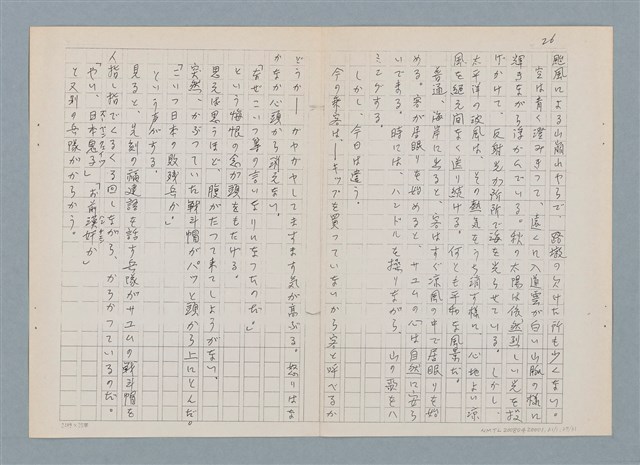 26
颱風による山崩れやらで、路坂の欠けた所も少くない。
空は青く澄みきって、遠くに入道雲が白い山脈の様に
輝きながら浮かんでいる。秋の太陽は依然烈しい光を投
げかけて、反射光が所所で海を光らせている。しかし、
太平洋の波風は、その熱気をうち消す様に、心地よい涼
風を絶え間なく送り続ける。何とも平和な風景だ。
普通、海岸に出ると、客はすぐ涼風の中で居眠りを始
める。客が居眠りを始めると、サユムの心は自然に安ら
いでまる。時には、ハンドルを操りながら、山の歌をハ
ミングする。
しかし、今日は違う。
今の乗客は、――キップを買っていないから客と呼べるか
どうか――ガヤガヤしてますます気が高ぶる。怒りはな
かなか心頭から消えない。
「なぜこいつ等の言いなりになったのだ。」
という悔恨の念が頭をもたげる。
思えば思うほど、腹がたって来てしようがない。
突然、かぶっていた戦斗帽がパッと頭から上にとんだ。
「こいつ日本の敗残兵か。」
という声がする。
見ると、先刻の福建語を話す兵隊がサユムの戦斗帽を
人指し指でくるくる回しながら、からかっているのだ。
「やい、日本鬼子」「お前漢奸か」
と又別の兵隊がからかう。